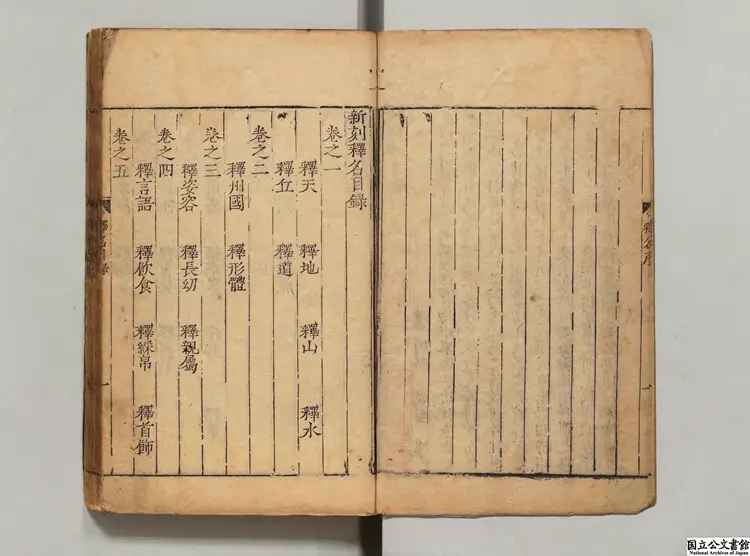 釋名序
新刻釋名目錄
卷之一
釋天 釋地 釋山 釋水
釋丘 釋道
卷之二
釋州國 釋形體
卷之三
釋姿容 釋長幼 釋親屬
卷之四
釋言語 釋飲食 釋綵帛 釋首飾
卷之五
釋名目錄
一
国立公文書館
National Archives of Japan